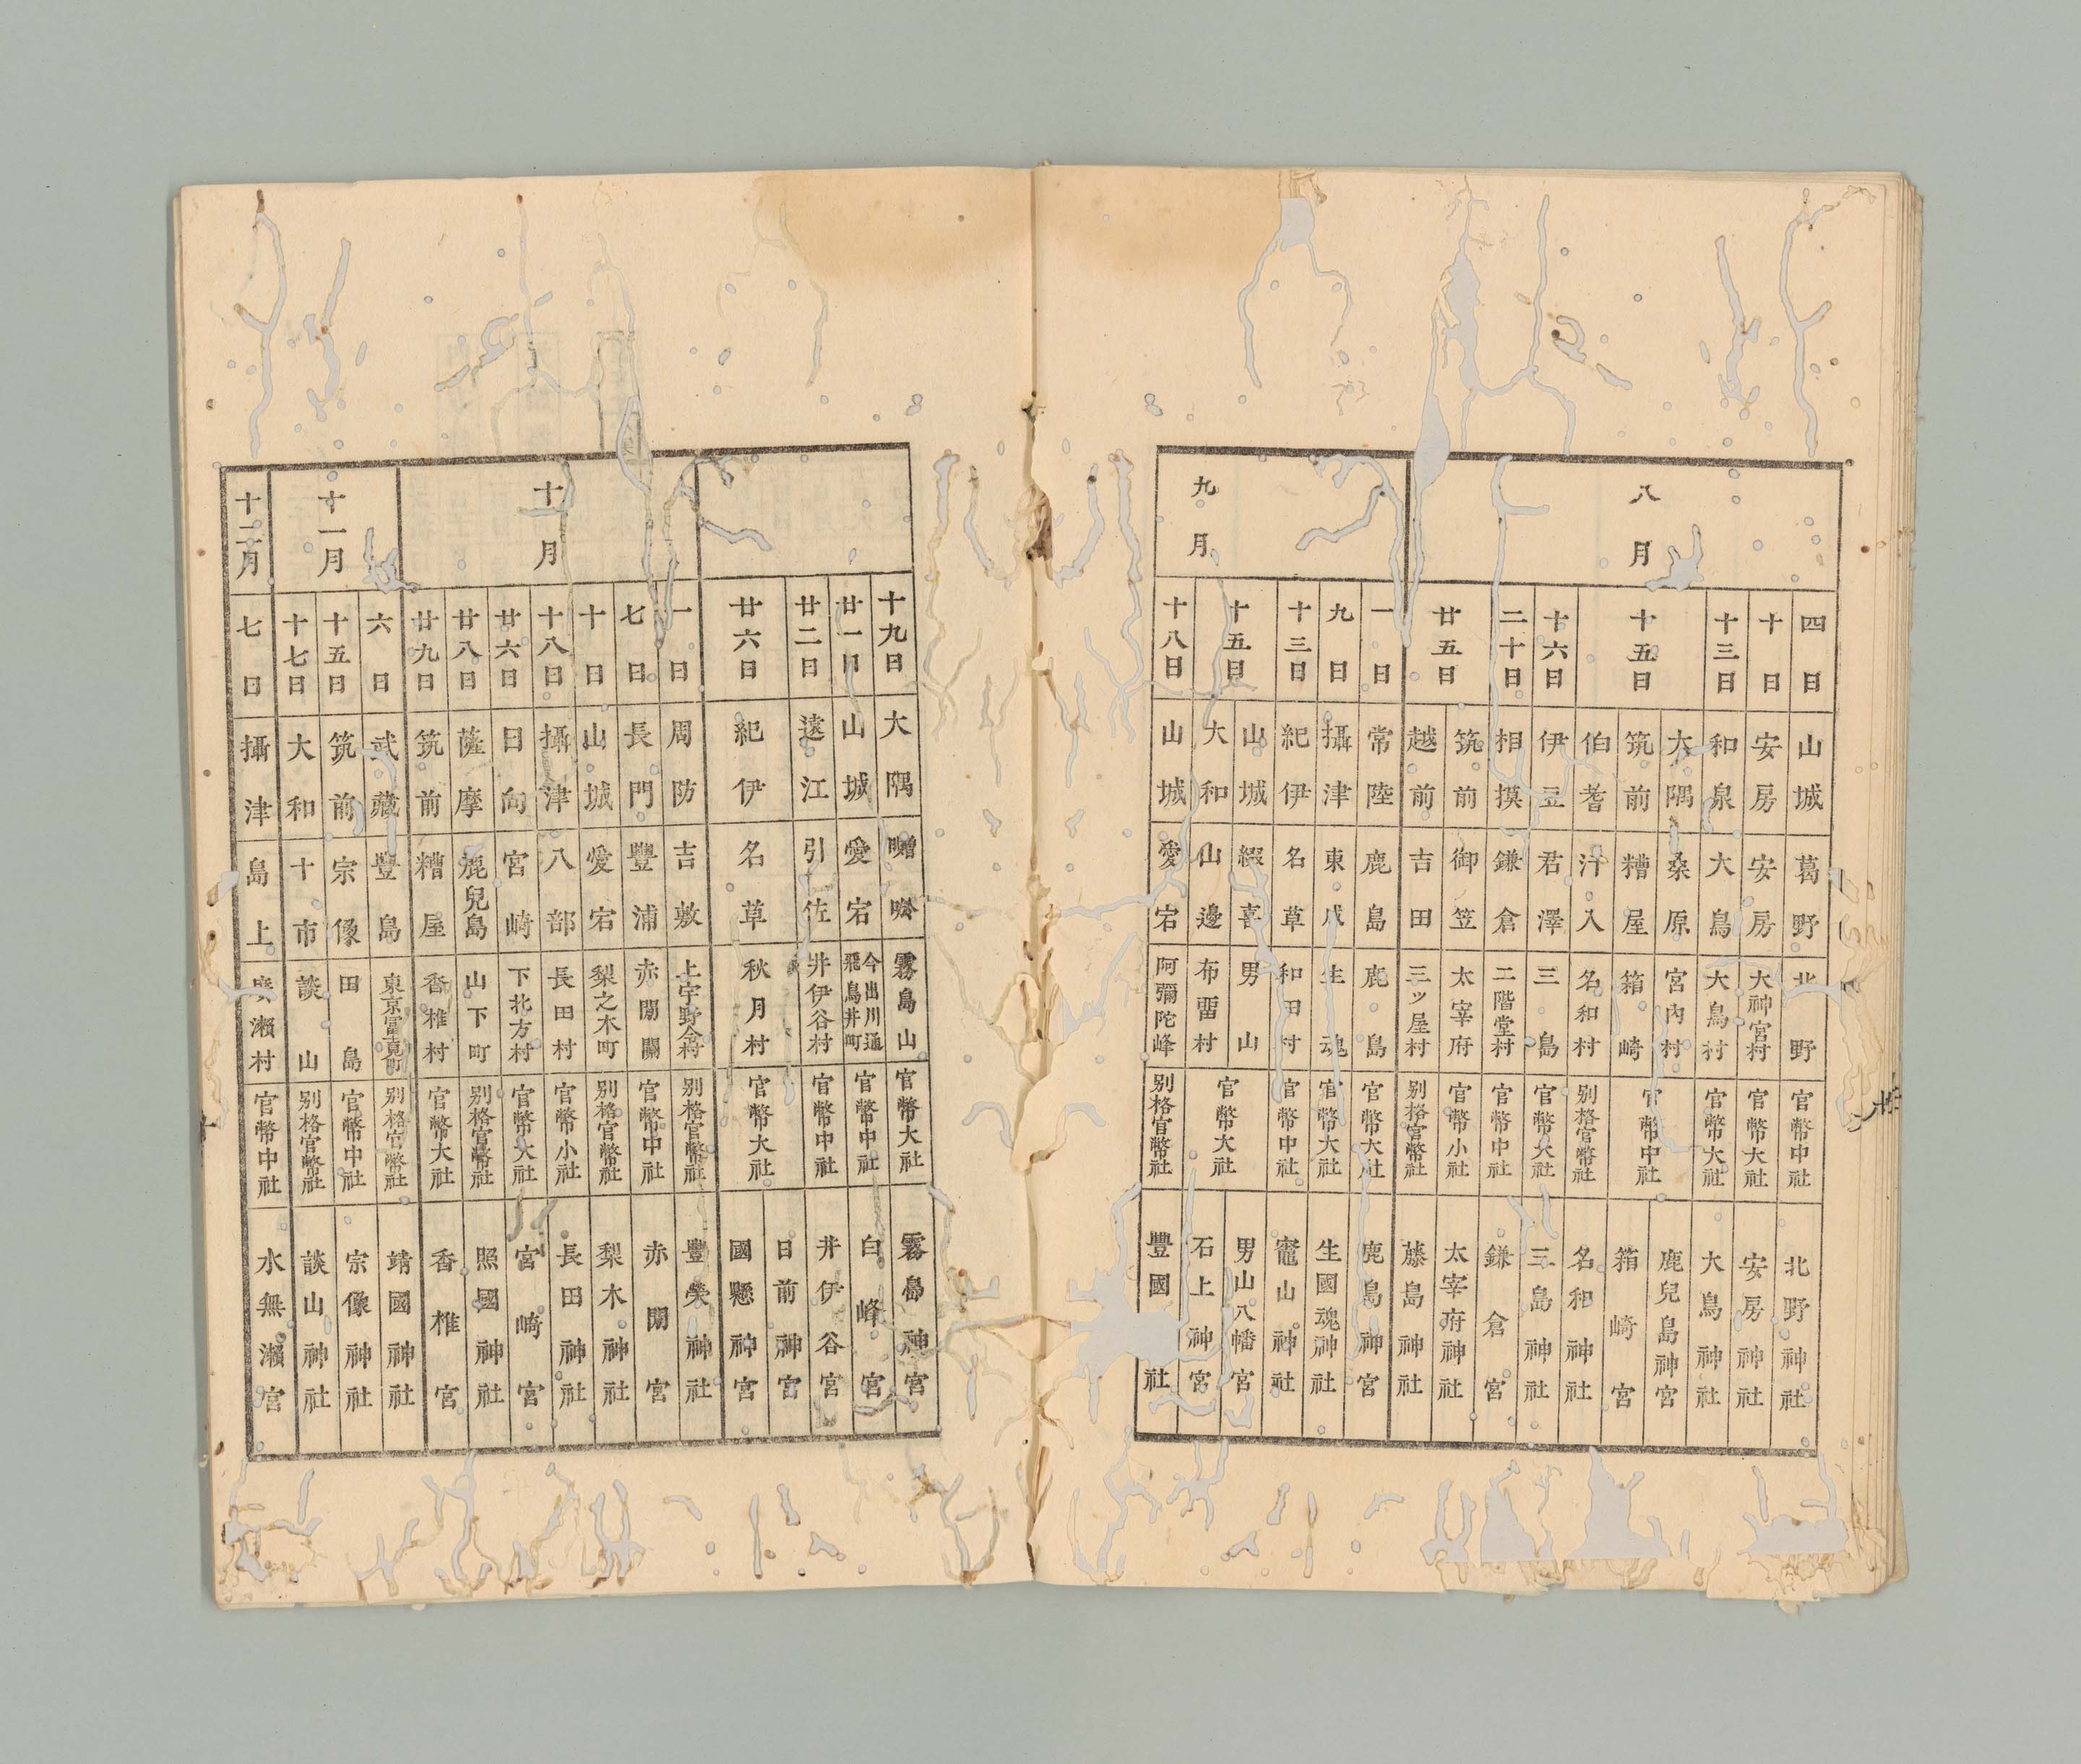 八月
四日 山城 葛野 北野 官幣中社 北野神社
十日 安房 安房 大神宮村 官幣大社 安房神社
十三日 和泉 大鳥 大鳥村 官幣大社 大鳥神社
十五日 大隅 桑原 宮内村 官幣中社 鹿兒島神宮
筑前 糟屋 箱崎 箱崎宮
伯耆 汗入 名和村 別格官幣社 名和神社
十六日 伊豆 君澤 三島 官幣大社 三島神社
二十日 相摸 鎌倉 二階堂村 官幣中社 鎌倉宮
廿五日 筑前 御笠 太宰府 官幣小社 太宰府神社
越前 吉田 三ッ屋村 別格官幣社 藤島神社
九月
一日 常陸 鹿島 鹿島 官幣大社 鹿島神宮
九日 攝津 東成 生魂 官幣大社 生國魂神社
十三日 紀伊 名草 和田村 官幣中社 竈山神社
十五日 山城 綴喜 男山 官幣大社 男山八幡宮
大和 山邊 布畱村 石上神宮
十八日 山城 愛宕 阿彌陀峰 別格官幣社 豐國 社
十九日 大隅 囎唹 霧島山 官幣大社 霧島神宮
廿一日 山城 愛宕 今出川通飛鳥井町 官幣中社 白峰宮
廿二日 遠江 引佐 井伊谷村 官幣中社 井伊谷宮
廿六日 紀伊 名草 秋月村 官幣大社 日前神宮
國懸神宮
十月
一日 周防 吉敷 上宇野令村 別格官幣社 豐榮神社
七日 長門 豐浦 赤間關 官幣中社 赤間宮
十日 山城 愛宕 梨之木町 別格官幣社 梨木神社
十八日 攝津 八部 長田村 官幣小社 長田神社
廿六日 日向 宮崎 下北方村 官幣大社 宮崎宮
廿八日 薩摩 鹿兒島 山下町 別格官幣社 照國神社
廿九日 筑前 糟屋 香椎村 官幣大社 香椎宮
十一月
六日 武藏 豐島 東京富士見町 別格官幣社 靖國神社
十五日 筑前 宗像 田島 官幣中社 宗像神社
十七日 大和 十市 談山 別格官幣社 談山神社
十二月
七日 攝津 島上 廣瀨村 官幣中社 水無瀨宮